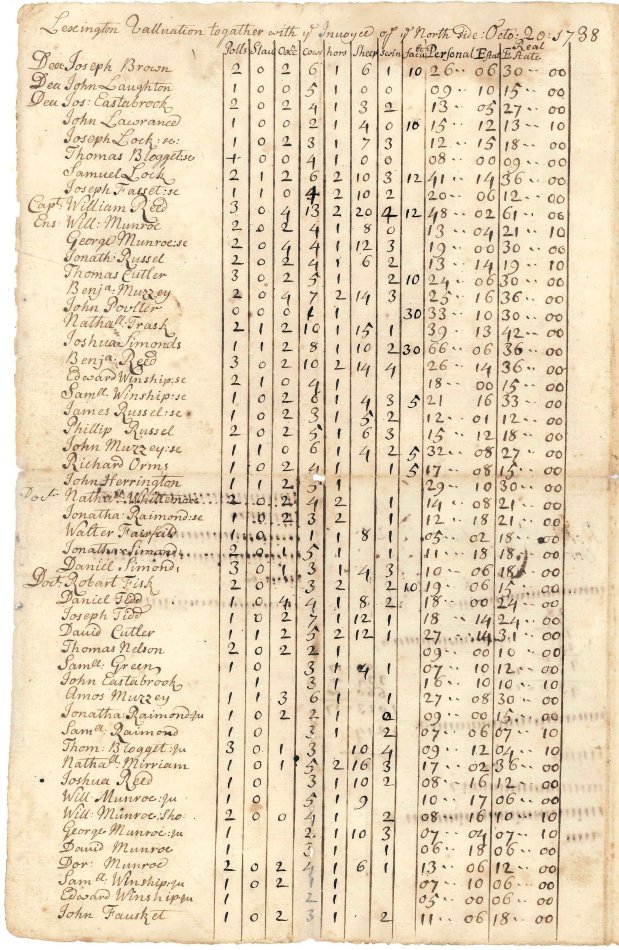 Lexington Valluation togather with yͤ Invoyce of yͤ North Side: Octo: 20: 1738
Polls Slau Oxec Cows hors Sheep swin facu Personal Estat Real Estate
Dea Joseph Brown 2 0 2 6 1 6 1 10 26 06 30 00
Dea John Laughton 1 0 0 5 1 0 0 09 10 15 00
Dea Jos: Eastabrook 2 0 2 4 1 3 2 13 05 27 00
John Lawraned 1 0 0 2 1 4 0 10 15 12 13 10
Joseph Lock: se: 1 0 2 3 1 7 3 12 15 18 00
Thomas Blogget: se 1 0 0 4 1 0 0 08 00 09 00
Samuel Lock 2 1 2 6 2 10 3 12 41 14 36 00
Joseph Fasset: se 1 1 0 4 2 10 2 20 06 12 00
Capt William Reed 3 0 4 13 2 20 4 12 48 02 61 00
Ens: Will: Munroe 2 0 2 4 1 8 0 13 04 21 10
George Munroe: se 2 0 4 4 1 12 3 19 00 30 00
Jonath: Russel 2 0 2 4 1 6 2 13 14 19 10
Thomas Cutler 3 0 2 5 1 2 10 24 06 30 00
Benja: Muzzey 2 0 4 7 2 14 3 25 16 36 00
John Poulter 0 0 0 1 1 30 33 10 30 00
Nathall: Trask 2 1 2 10 1 15 1 39 13 42 00
Joshua Simonds 1 1 2 8 1 10 2 30 66 06 36 00
Benja: Reed 3 0 2 10 2 14 4 26 14 36 00
Edward Winship: se 2 1 0 4 1 18 00 15 00
Samll: Winship: se 1 0 2 8 1 4 3 5 21 16 33 00
James Russel: se 1 0 2 3 1 5 2 12 01 12 00
Phillip Russel 2 0 2 5 1 6 3 15 12 18 00
John Muzzey: se 1 1 0 6 1 4 2 5 32 08 27 00
Richard Orms 1 0 2 4 1 1 5 17 08 15 00
John Herrington 1 1 2 5 1 29 10 30 00
Doct: Nathall 2 0 2 4 2 1 14 08 21 00
Jonatha: Raimond: se 1 0 2 3 2 1 12 18 21 00
Walter 1 0 1 1 8 1 05 02 18 00
Jonathan Simond, 2 0 2 5 1 11 18 18 00
Daniel Simond, 3 0 1 3 1 4 3 10 06 18 00
Doct: Robart Fisk 2 0 3 2 2 10 19 06 15 00
Daniel Tedd 1 0 4 4 1 8 2 18 00 24 00
Joseph Tidd 1 0 2 7 1 12 1 18 14 24 00
Dauid Cutler 1 1 2 5 2 12 1 27 14 31 00
Thomas Nelson 2 0 2 2 1 09 00 10 00
Samll: Green 1 0 3 4 1 07 10 12 00
John Eastabrook 1 3 1 16 10 10 10
Amos Muzzey 1 1 3 6 1 1 27 08 30 00
Jonatha: Raimond: ju 1 0 2 2 1 0 09 00 15 00
Samll: Raimond 1 0 3 1 2 07 06 07 10
Thom: Blogget: ju 3 0 1 3 10 4 09 12 04 10
Nathall: Mirriam 1 0 1 5 2 16 3 17 02 36 00
Joshua Reed 1 0 3 1 10 2 08 16 12 00
Will: Munroe: ju 1 0 5 1 9 10 17 06 00
Will: Munroe: Sho: 2 0 0 4 1 2 08 16 10 00
George Munroe: ju 1 2 1 10 3 07 04 07 10
Dauid Munroe 1 3 1 06 18 06 00
Dor: Munroe 2 0 2 4 1 6 1 13 06 12 00
Samll: Winship: ju 1 0 2 1 1 07 10 06 00
Edward Winship: ju 1 0 2 1 05 00 06 00
John Fausket 1 0 2 3 1 2 11 06 18 00